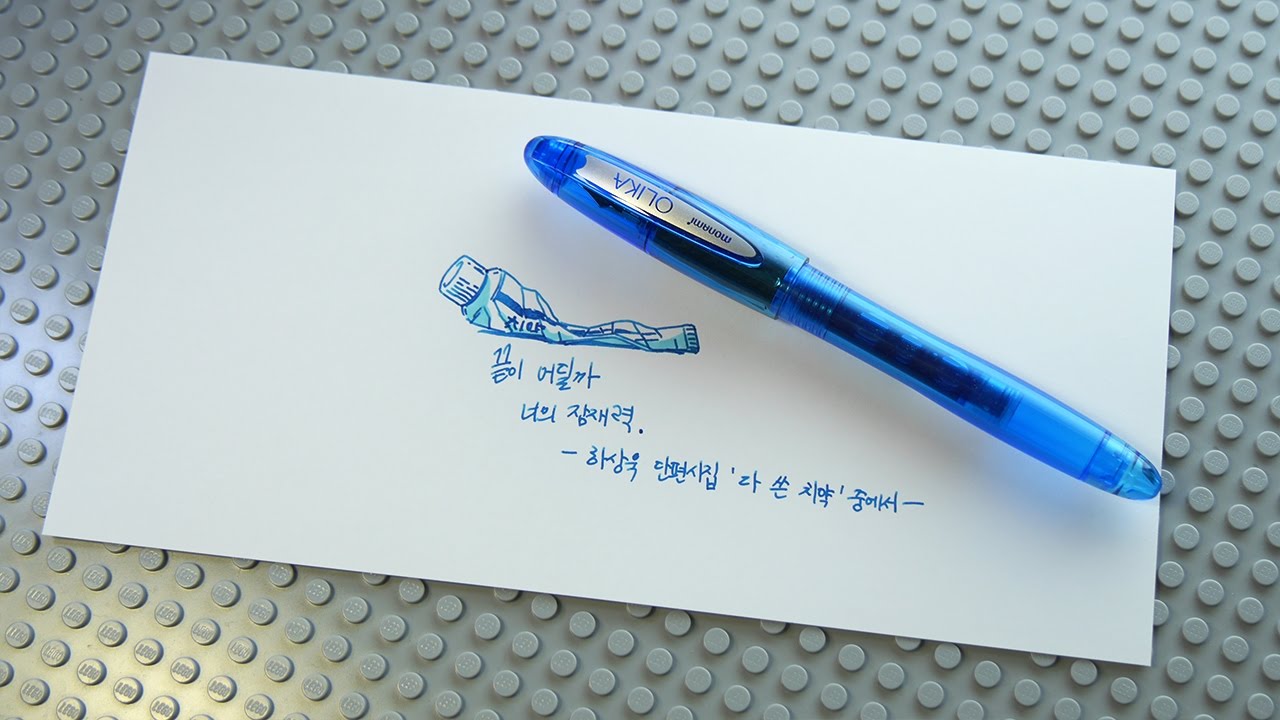 monami OLIKA
치약
끝이 어딜까
너의 잠재력.
- 하상욱 단편시집 '다 쓴 치약' 중에서 -
LEGO